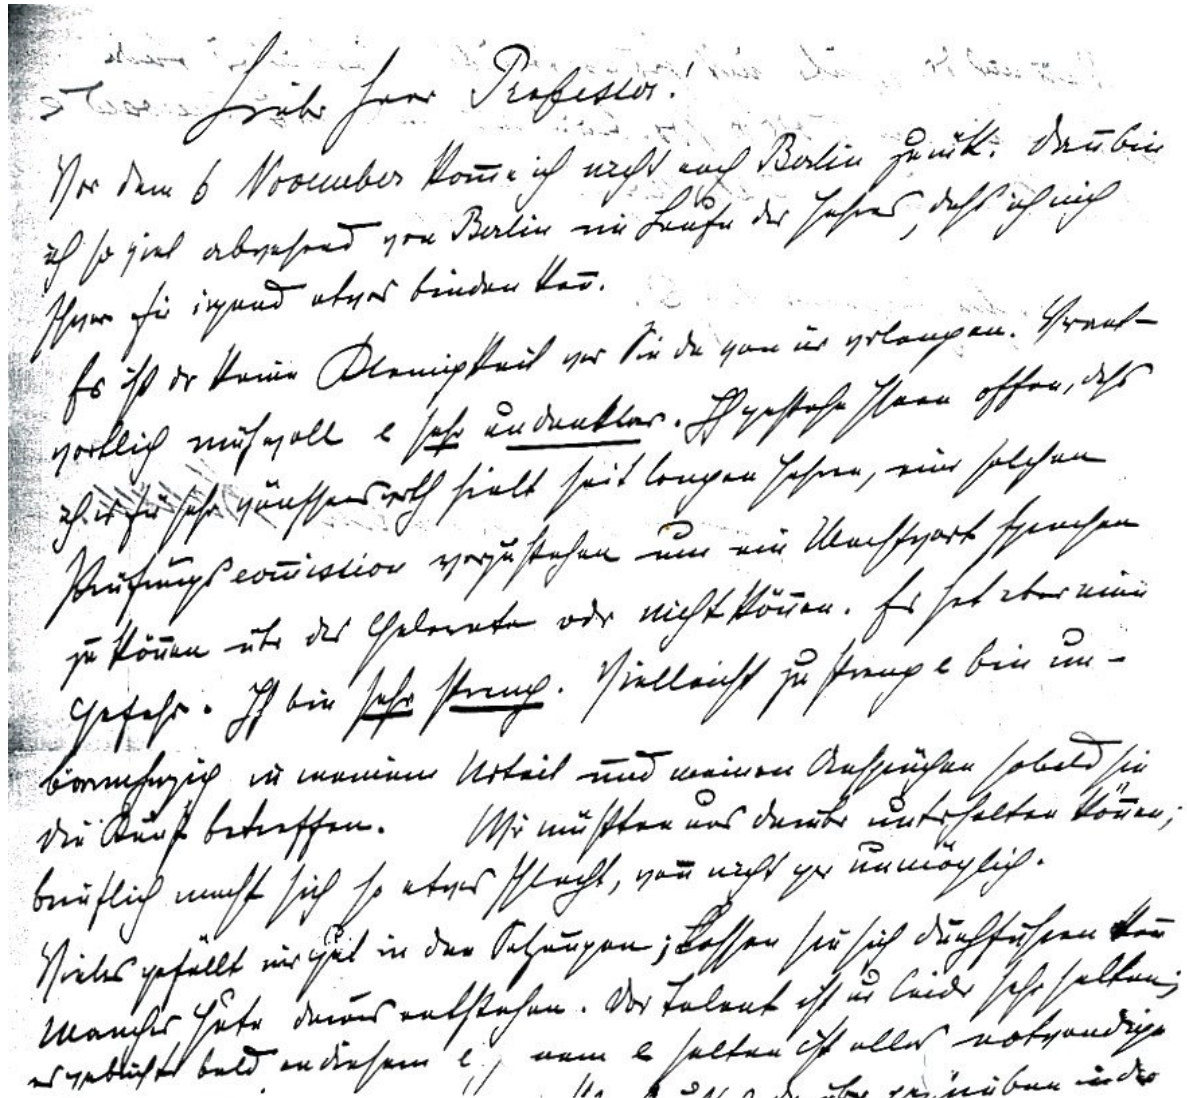 Lieber Herr Professor.
Vor dem 6 November kom̅e ich nicht nach Berlin zurük. Dan̅ bin
ich so viel abwesend von Berlin im Laufe des Jahres, dass ich mich
schwer für irgend etwas binden kan̅.
Es ist keine Kleinigkeit was Sie da von mir verlangen. Verant-
wortlich mühevoll & sehr undankbar. Ich gestehe Ihnen offen, dass
ich es für sehr wünschenswerth hielt seit langen Jahren, einer solchen
Prüfungscom̅ission vorzustehen um ein Machtwort sprechen
zu kön̅en über das Gelernte oder nicht kön̅en. Es hat aber eine
Gefahr. Ich bin sehr streng. Vielleicht zu streng & bin un-
barmherzig in meinem Urteil und meinen Ansprüchen sobald sie
die Kunst betreffen. Wir müssten uns darüber unterhalten kön̅en;
brieflich macht sich so etwas schlecht, wen̅ nicht gar unmöglich.
Vieles gefällt mir gut in den Satzungen; Lassen sie sich durchführen kan̅
manches Gute daraus entstehen. Das Talent ist nur leider sehr selten;
es gebricht bald an diesem & selten ist alles notwendige